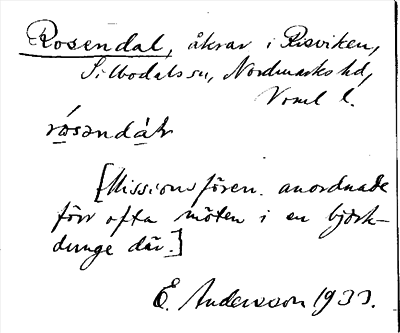 Rosendal, åkrar i Risviken,
Silbodals sn, Nordmarks hd,
Vrml l.
rósəndàʈɩ
[Missionsfören. anordnade
förr ofta möten i en björk-
dunge där.]
E. Andersson 1933.